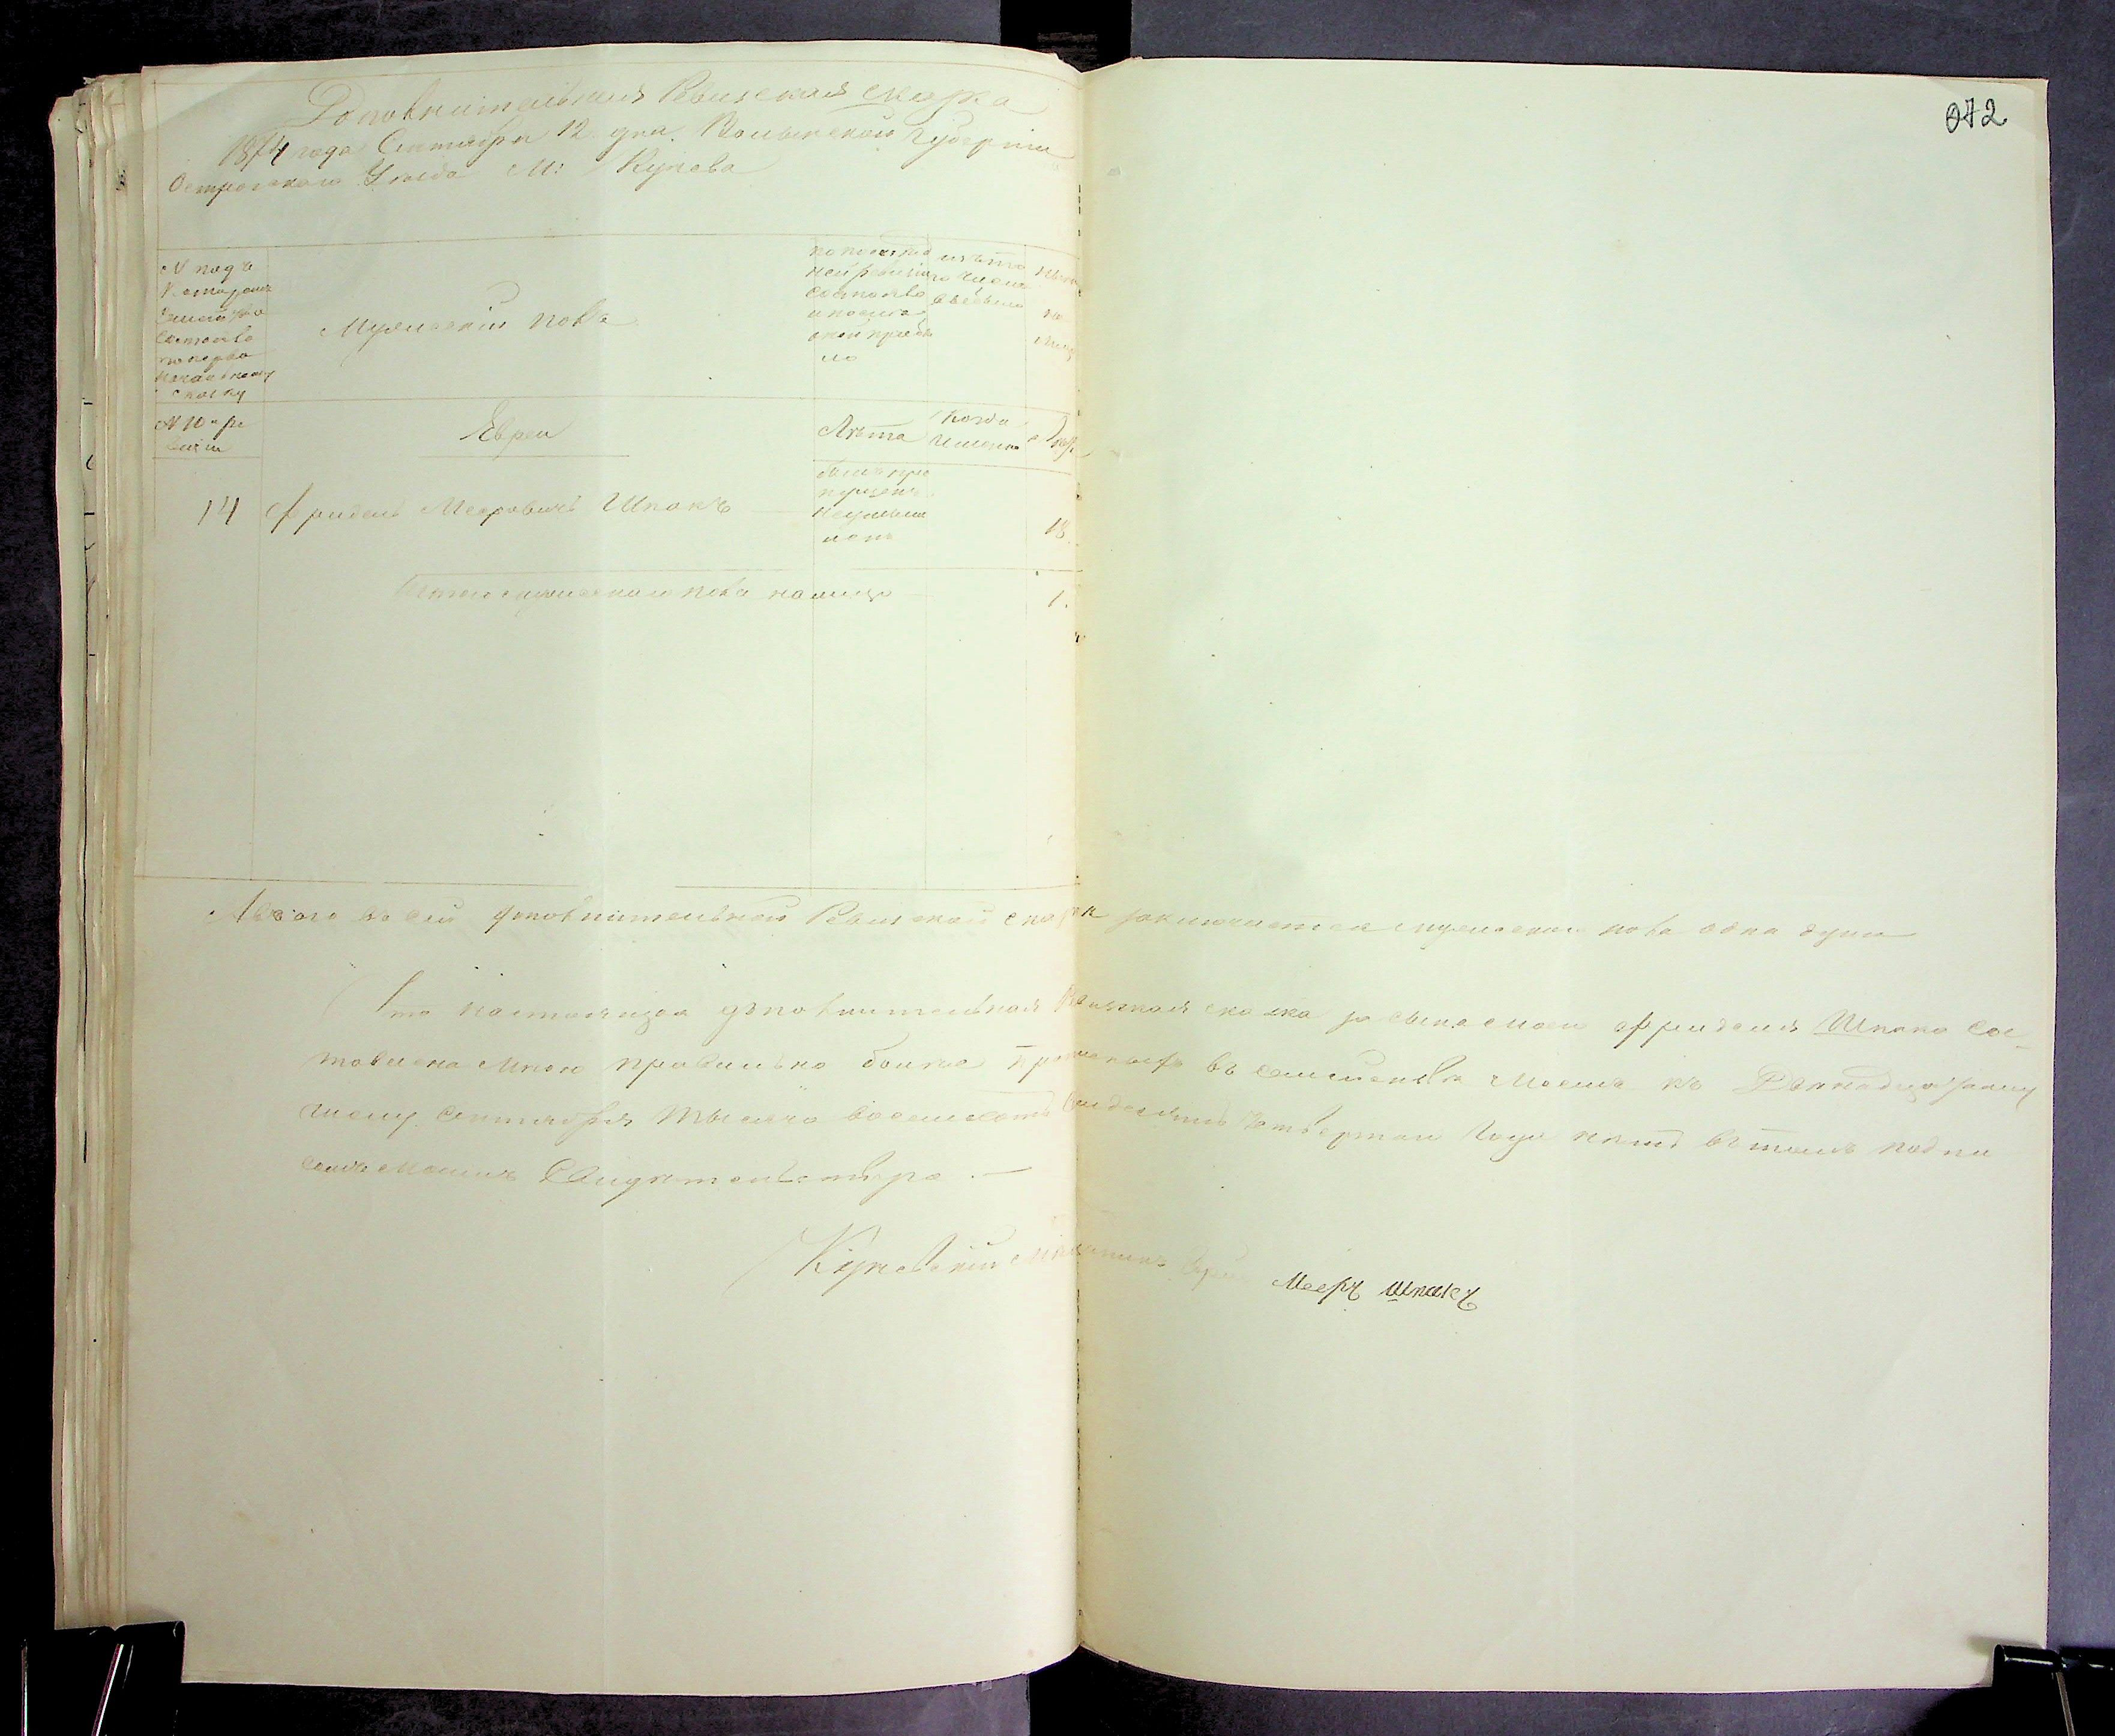 Дополнительная Ревизская сказка
1874 года Сентября 12 дня Волынской Губернии
Острожского Уезда М: Кунева
072
N подъ
Которымъ
Семейство
состояло
по перво
начальному
списку
Мужескій полъ
по послед
ней ревизіи
состояло
и после
оной прибы
ло
изъ то
го числа
выбыло
ныне
на
лицо
N 10й ре
визіи
Евреи
Лета
Когда
Именно
14 Фридель Мееровичъ Шпакъ
былъ про
пущенъ
18.
Итого мужеского пола налицо 1.
Всего въ сей дополнительной Ревизской сказке заключается мужеского пола одна душа
Что настоящая дополнительная Ревизская сказка за сына моего Фриделя Шпака сос-
тавлена мною правильно более въ семействе моемъ къ Двенадцатому
числу Сентября тысяча восемьсотъ семдесятъ четвертаго года нетъ въ томъ подпи
сомъ моимъ Свидетельствую. —
Куневскій Мещанинъ Еврей Мееръ Шпакъ